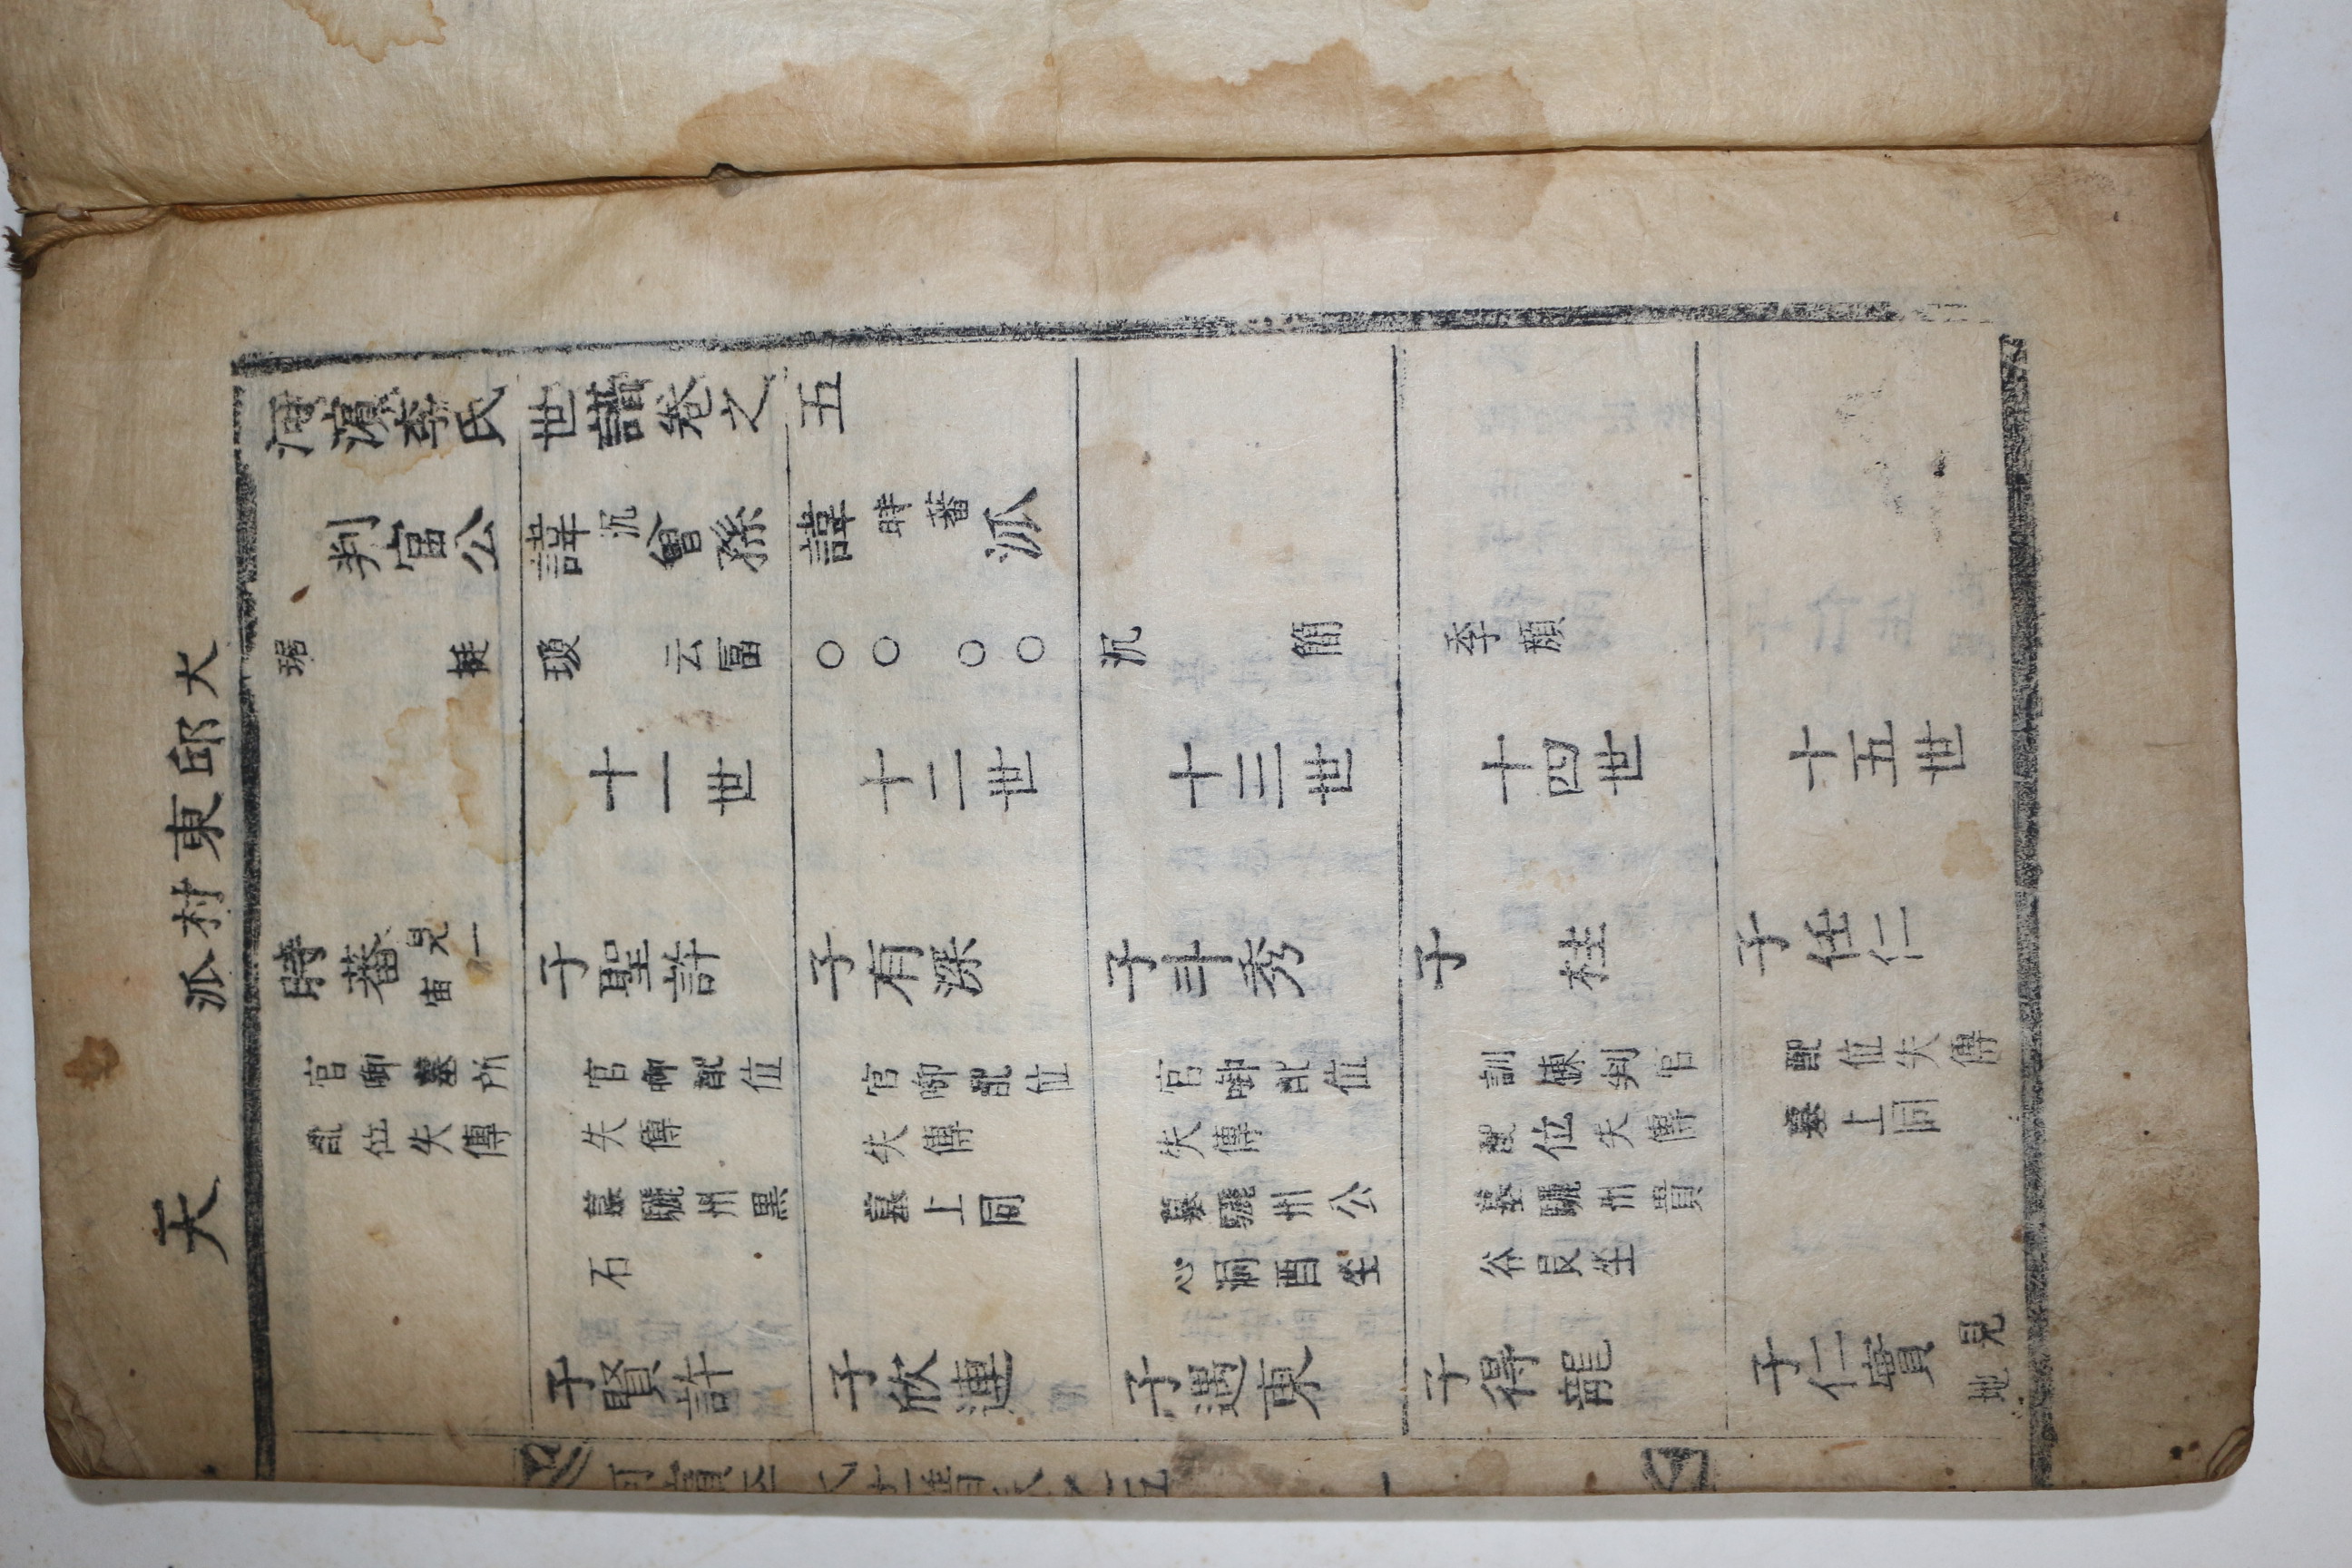 大邱東村派
天
河濵李氏世譜卷之五
判官公諱沉曾孫諱時蕃派
琚 挺 瑗 云冨 〇〇〇〇 沉 簡 季頏
十一世 十二世 十三世 十四世 十五世
時蕃 見一宙
官啣墓所
配位失傳
子聖許
官啣配位
失傳
墓驪州黒
石
子有深
官啣配位
失傳
墓上同
子斗秀
官啣配位
失傳
墓驪州公
心洞酉坐
子桂
訓鍊判官
配位失傳
墓驪州貴
谷艮坐
子任仁
配位失傳
墓上同
子賢許
子欣連
子遇東
子得龍
子仁實 見地